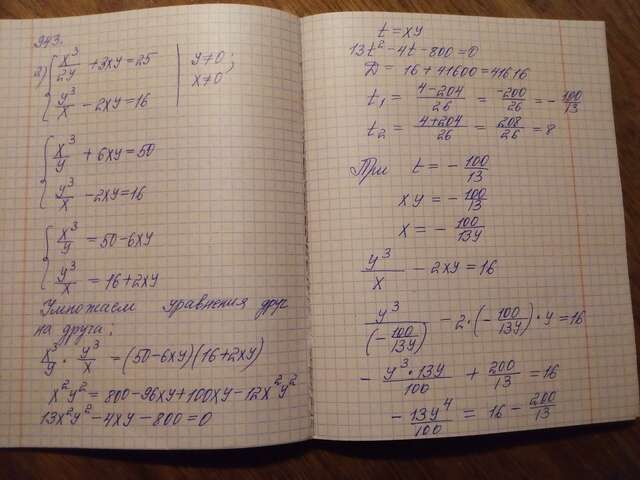 943.
2) { x³/2y + 3xy = 25 | y ≠ 0;
{ y³/x - 2xy = 16 | x ≠ 0
{ x³/y + 6xy = 50
{ y³/x - 2xy = 16
{ x³/y = 50 - 6xy
{ y³/x = 16 + 2xy
Умножаем уравнения друг
на друга:
x³/y · y³/x = (50 - 6xy)(16 + 2xy)
x²y² = 800 - 96xy + 100xy - 12x²y²
13x²y² - 4xy - 800 = 0
t = xy
13t² - 4t - 800 = 0
D = 16 + 41600 = 41616
t₁ = (4 - 204)/26 = -200/26 = - 100/13
t₂ = (4 + 204)/26 = 208/26 = 8
При t = - 100/13
xy = - 100/13
x = - 100/13y
y³/x - 2xy = 16
y³/(- 100/13y) - 2 · (- 100/13y) · y = 16
- y³ · 13y/100 + 200/13 = 16
- 13y⁴/100 = 16 - 200/13